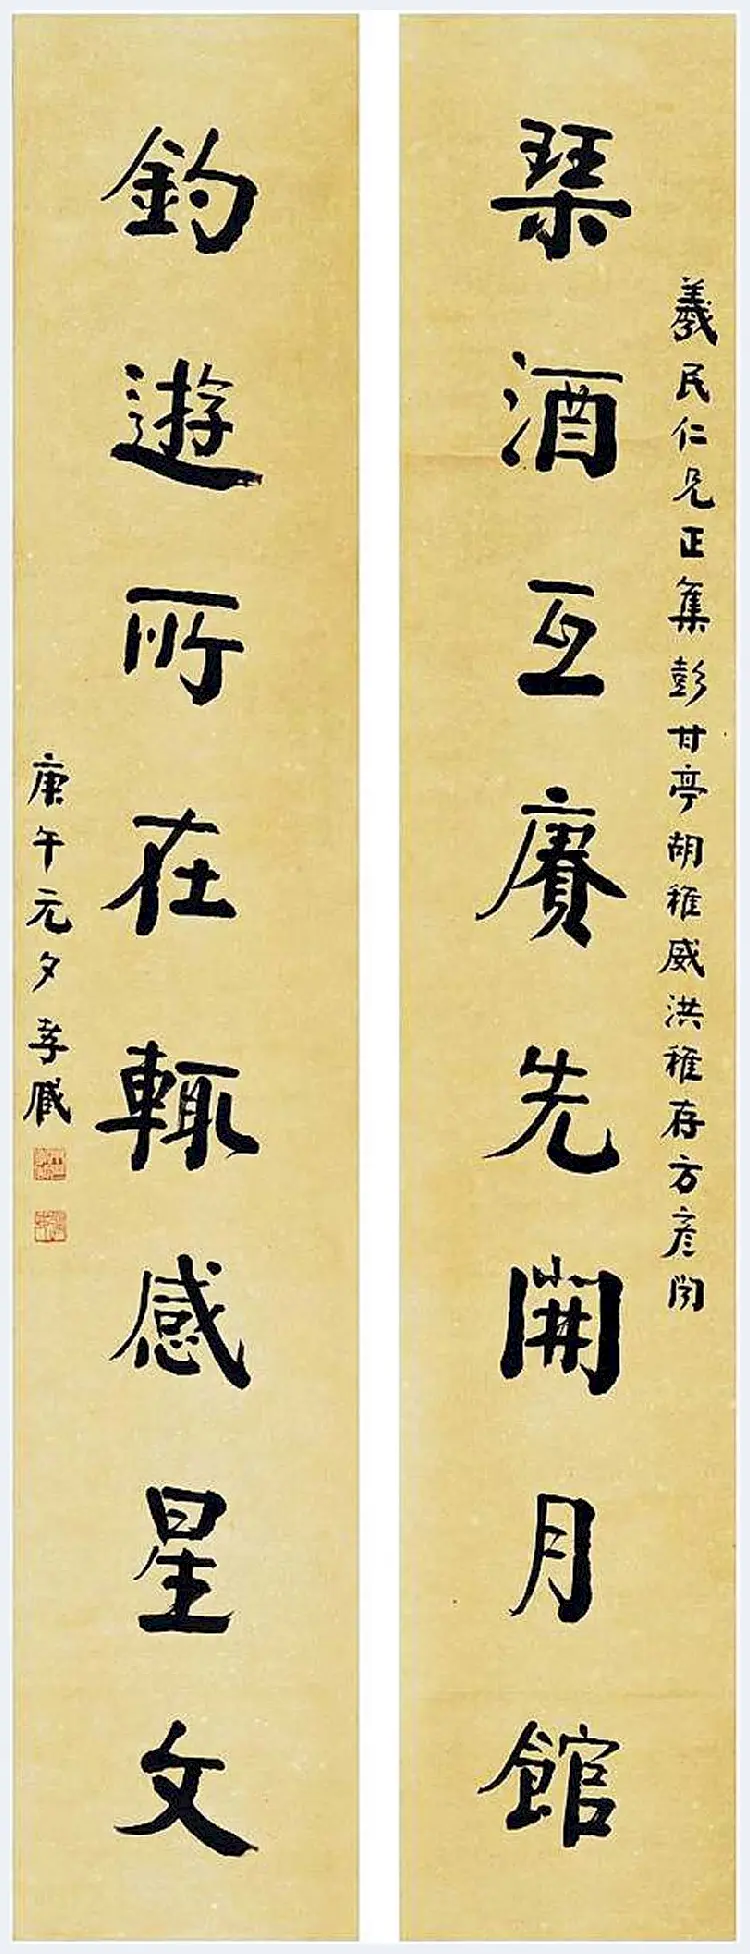 羲民仁兄正集彭甘亭胡稚威洪稚存方彥聞
琹酒互賡先開月館
釣遊所在輒感星文
庚午元夕孝臧